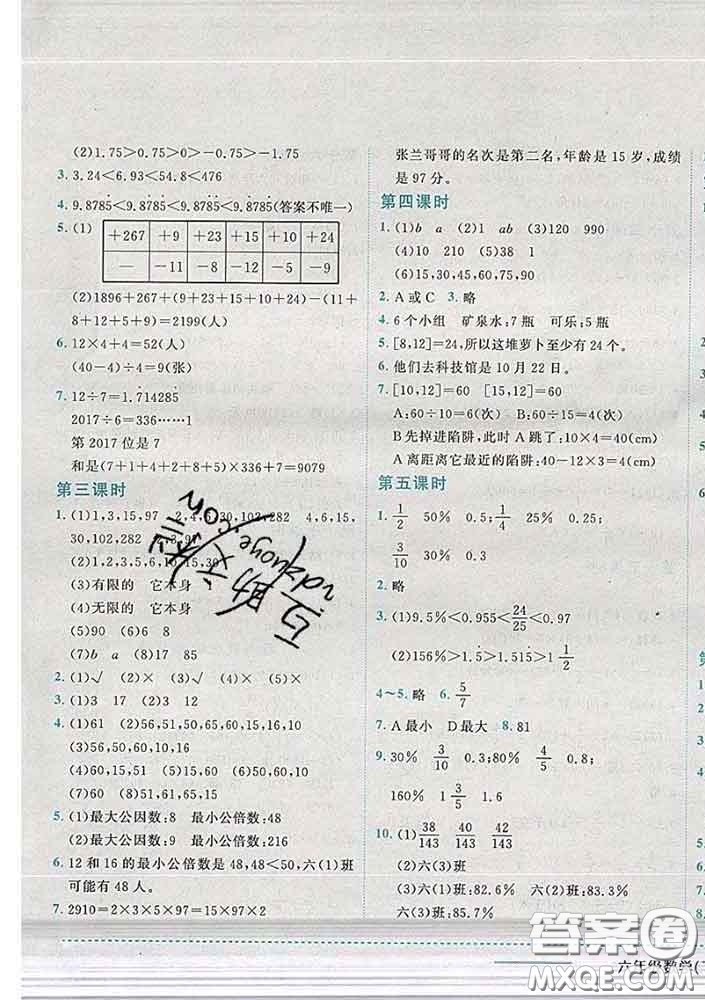 (2)1.75>0.75>0>-0.75>-1.75
3. 3.24<6.93<54.8<476
4. 9.8785<9.8785<9.8785<9.8785(答案不唯一)
5. (1) +267 +9 +23 +15 +10 +24
— -11 -8 -12 -5 -9
(2)1896+267+(9+23+15+10+24)-(11+
8+12+5+9)=2199(人)
6. 12×4+4=52(人)
(40-4)÷4=9(张)
7. 12÷7=1.714285
2017÷6=336……1
第 2017位是 7
和是(7+1+4+2+8+5)×336+7=9079
第三课时
1. (1)1,3,15,97 2,4,6,30,102,282 4,6,15,
30,102,282 2,3,97
(2)1,2,3,5,6,10,15,30
(3)有限的 它本身 1
(4)无限的 它本身
(5)90 (6)6 8
(7)b a (8)17 85
2. (1)√ (2)× (3)√ (4)× (5)×
3. (1)3 17 (2)3 12
4. (1)61 (2)56,51,50,65,60,15,16,10
(3)56,50,60,10,16
(4)60,15,51 (5)50,65,60,15,10
(6)60 (7)60 (8)51,61,65,15
5. (1)最大公因数:8 最小公倍数:48
(2)最大公因数:9 最小公倍数:216
6. 12 和 16 的最小公倍数是 48,48<50,六(1)班
可能有 48 人。
7. 2910=2×3×5×97=15×97×2
张兰哥哥的名次是第二名,年龄是 15 岁,成绩
是 97 分。
第四课时
1. (1)b a (2)1 ab (3)120 990
(4)10 210 (5)38 1
(6)15,30,45,60,75,90
2. A 或 C 3. 略
4. 6 个小组 矿泉水:7 瓶 可乐:5 瓶
5. [8,12]=24,所以这堆萝卜至少有 24 个。
6. 他们去科技馆是 10 月 22 日。
7. [10,12]=60 [15,12]=60
A:60÷10=6(次) B:60÷15=4(次)
B 先掉进陷阱,此时 A 跳了:10×4=40(cm)
A 离距离它最近的陷阱:40-12×3=4(cm)
第五课时
1. 1/2 50% 0.5; 1/4 25% 0.25;
3/10 30% 0.3
2. 略
3. (1)9.5%<0.955<24/25<0.97
(2)156%>1.5>1.515>1 1/2
4~5. 略 6. 5/7
7. A 最小 D 最大 8. 81
9. 30% 3/10 0.3; 80% 4/5 0.8;
160% 1 3/5 1.6
10. (1)38/143 35/143 42/143
(2)六(3)班
(3)六(1)班:82.6% 六(2)班:83.3%
六(3)班:85.7%
答案圈
MXQE.COM
六年级数学(下